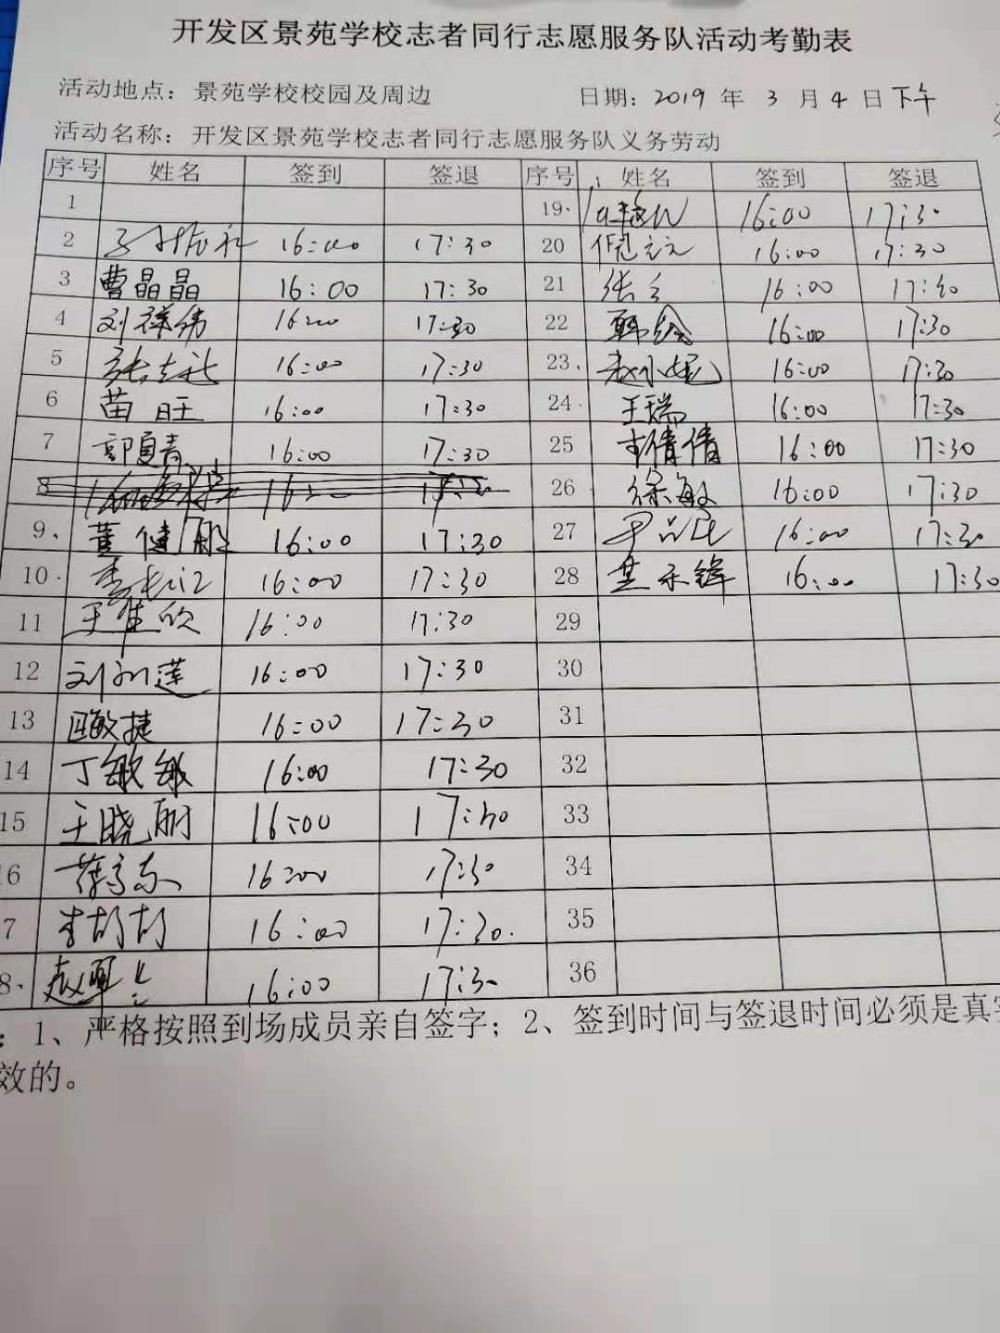 开发区景苑学校志者同行志愿服务队活动考勤表
活动地点：景苑学校校园及周边 日期：2019 年 3 月 4 日下午
活动名称：开发区景苑学校志者同行志愿服务队义务劳动
序号 姓名 签到 签退 序号 姓名 签到 签退
1 19 16:00 17:30
2 16:00 17:30 20 16:00 17:30
3 曹晶晶 16:00 17:30 21 16:00
4 刘祥伟 16:00 17:30 22 16:00 17:30
5 16:00 17:30 23 赵小妮 16:00 17:30
6 苗旺 16:00 17:30 24 王瑞 16:00 17:30
7 16:00 17:30 25 李倩倩 16:00 17:30
8 26 徐敏 16:00 17:30
9 董健 16:00 17:30 27 16:00 17:30
10 16:00 17:30 28 16:00 17:30
11 王佳欣 16:00 17:30 29
12 16:00 17:30 30
13 敏捷 16:00 17:30 31
14 丁敏敏 16:00 17:30 32
15 王晓丽 16:00 33
6 16:00 17:30 34
7 16:00 17:30. 35
8 16:00 17:30 36
：1、严格按照到场成员亲自签字；2、签到时间与签退时间必须是真实
效的。